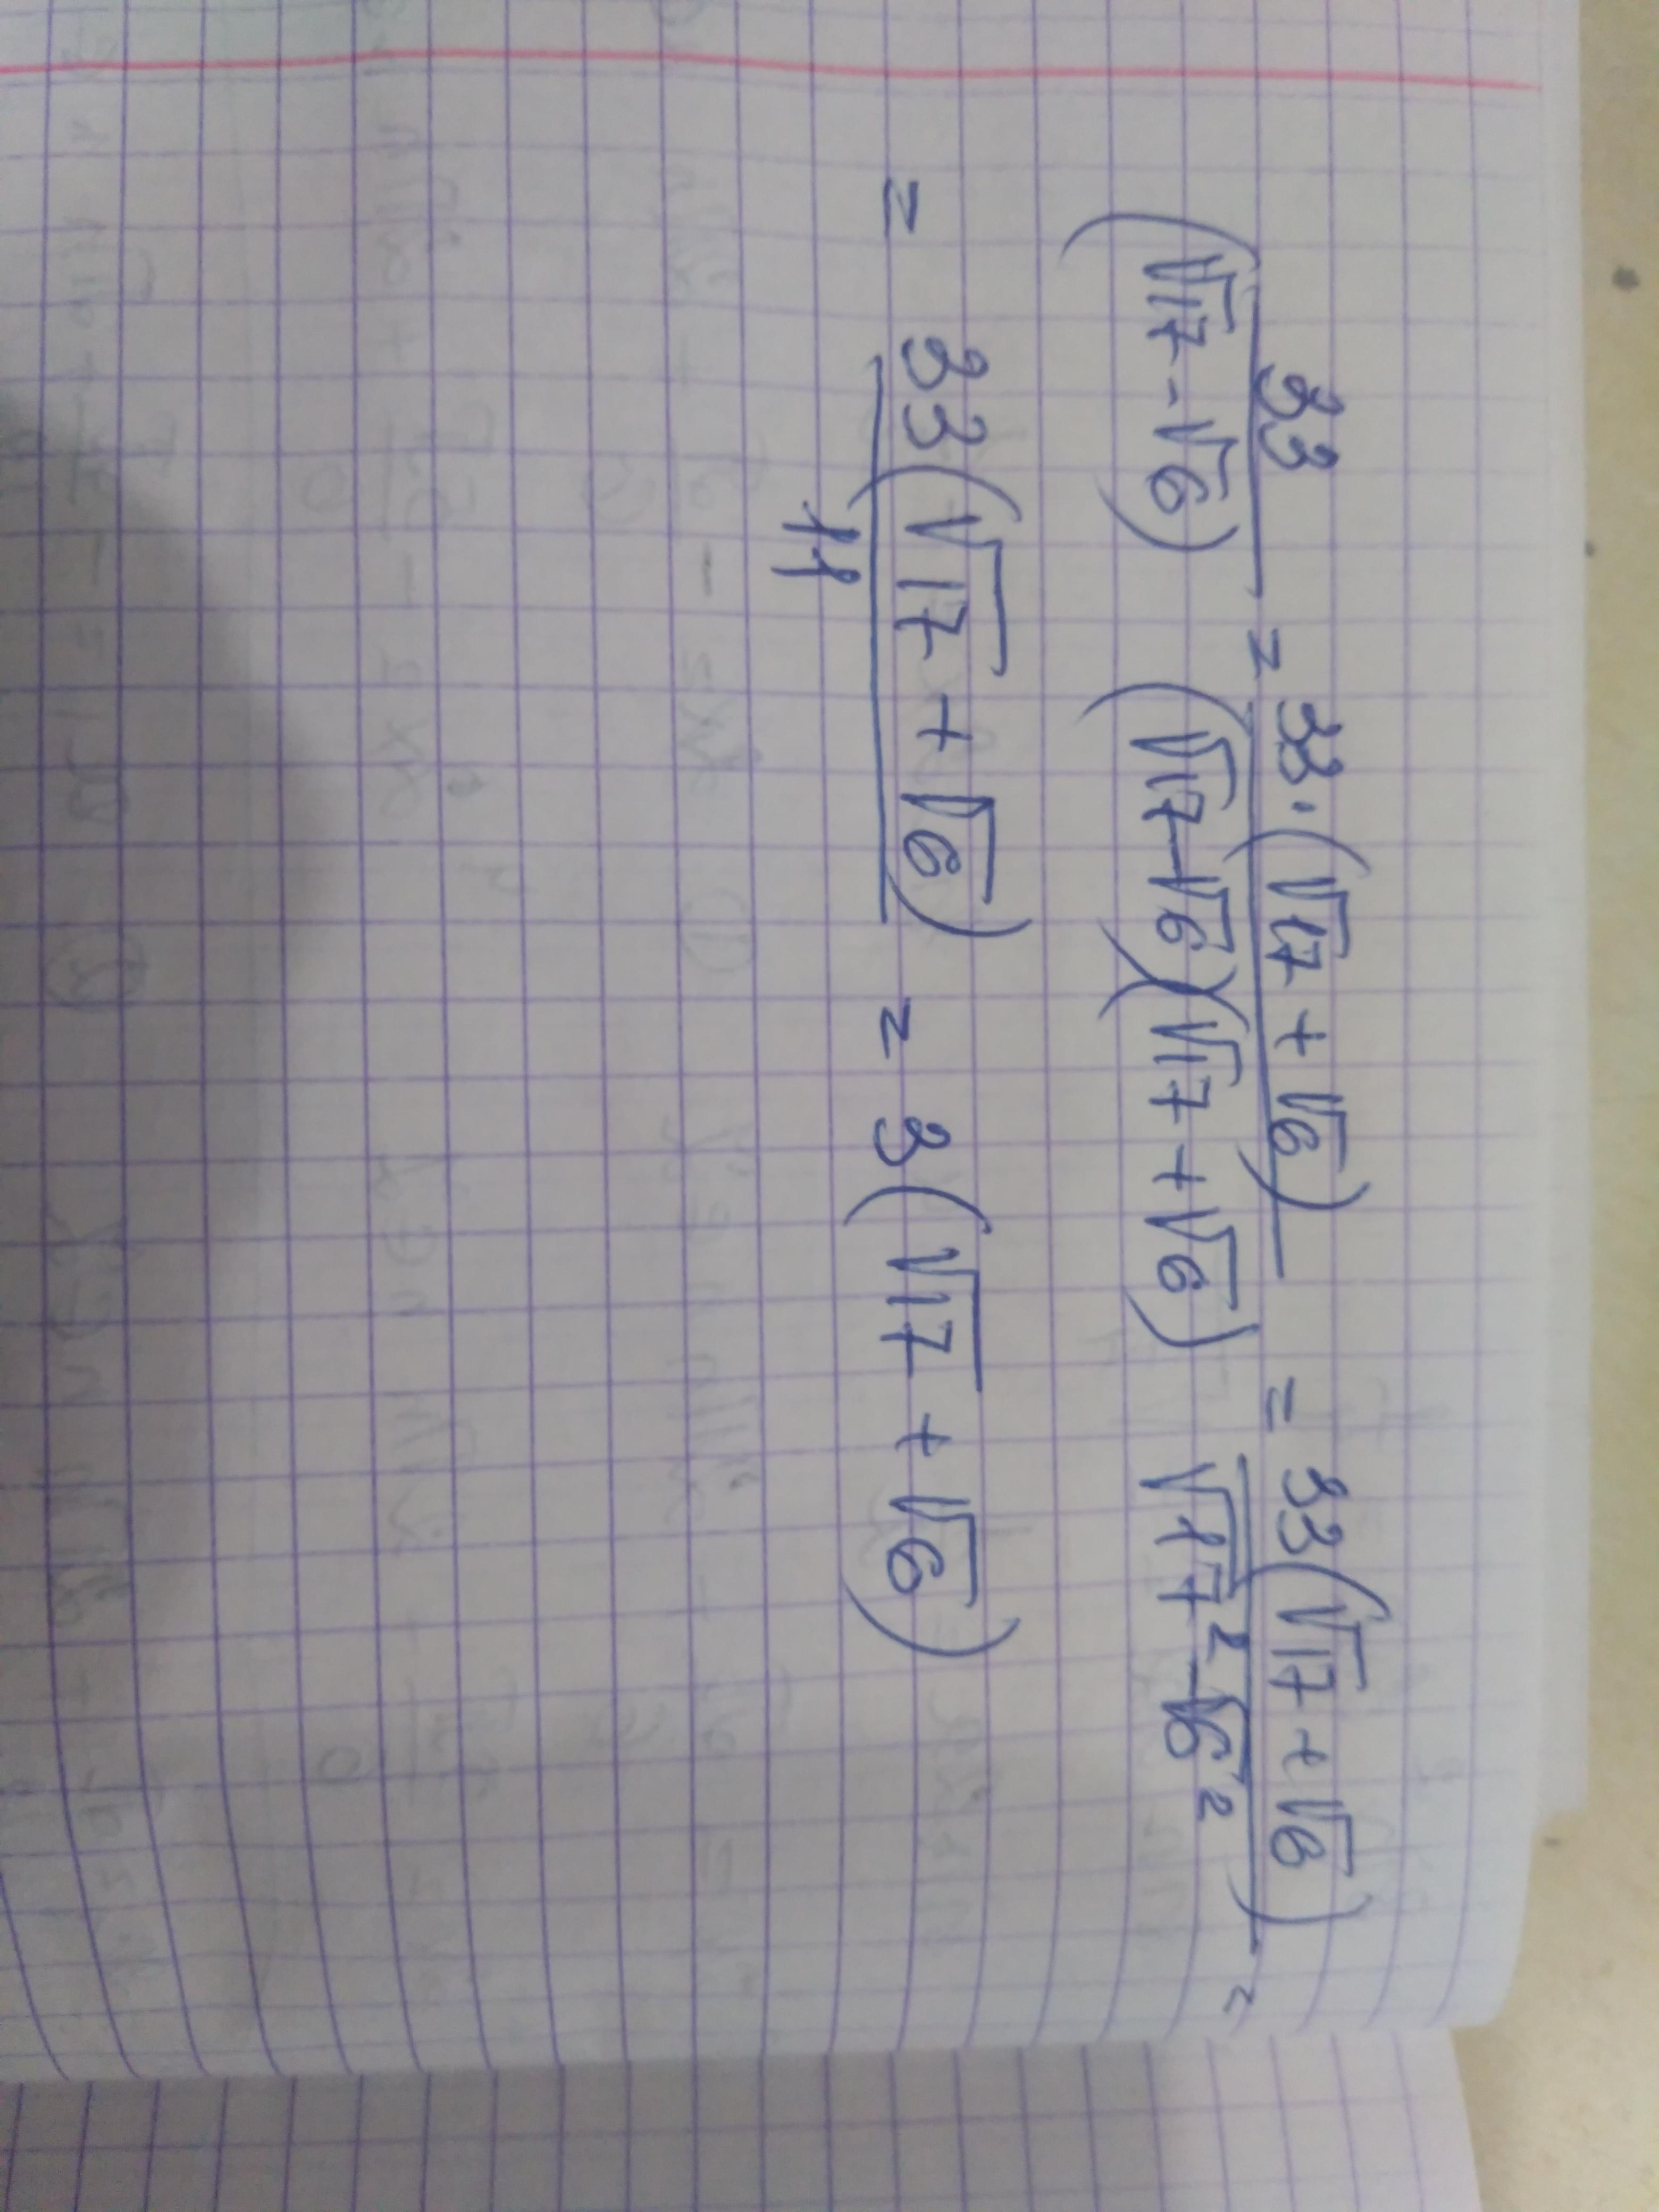 33/(√17-√6) = 33·(√17+√6)/(√17-√6)(√17+√6) = 33(√17+√6)/√17²-√6² =
= 33(√17+√6)/11 = 3(√17+√6)